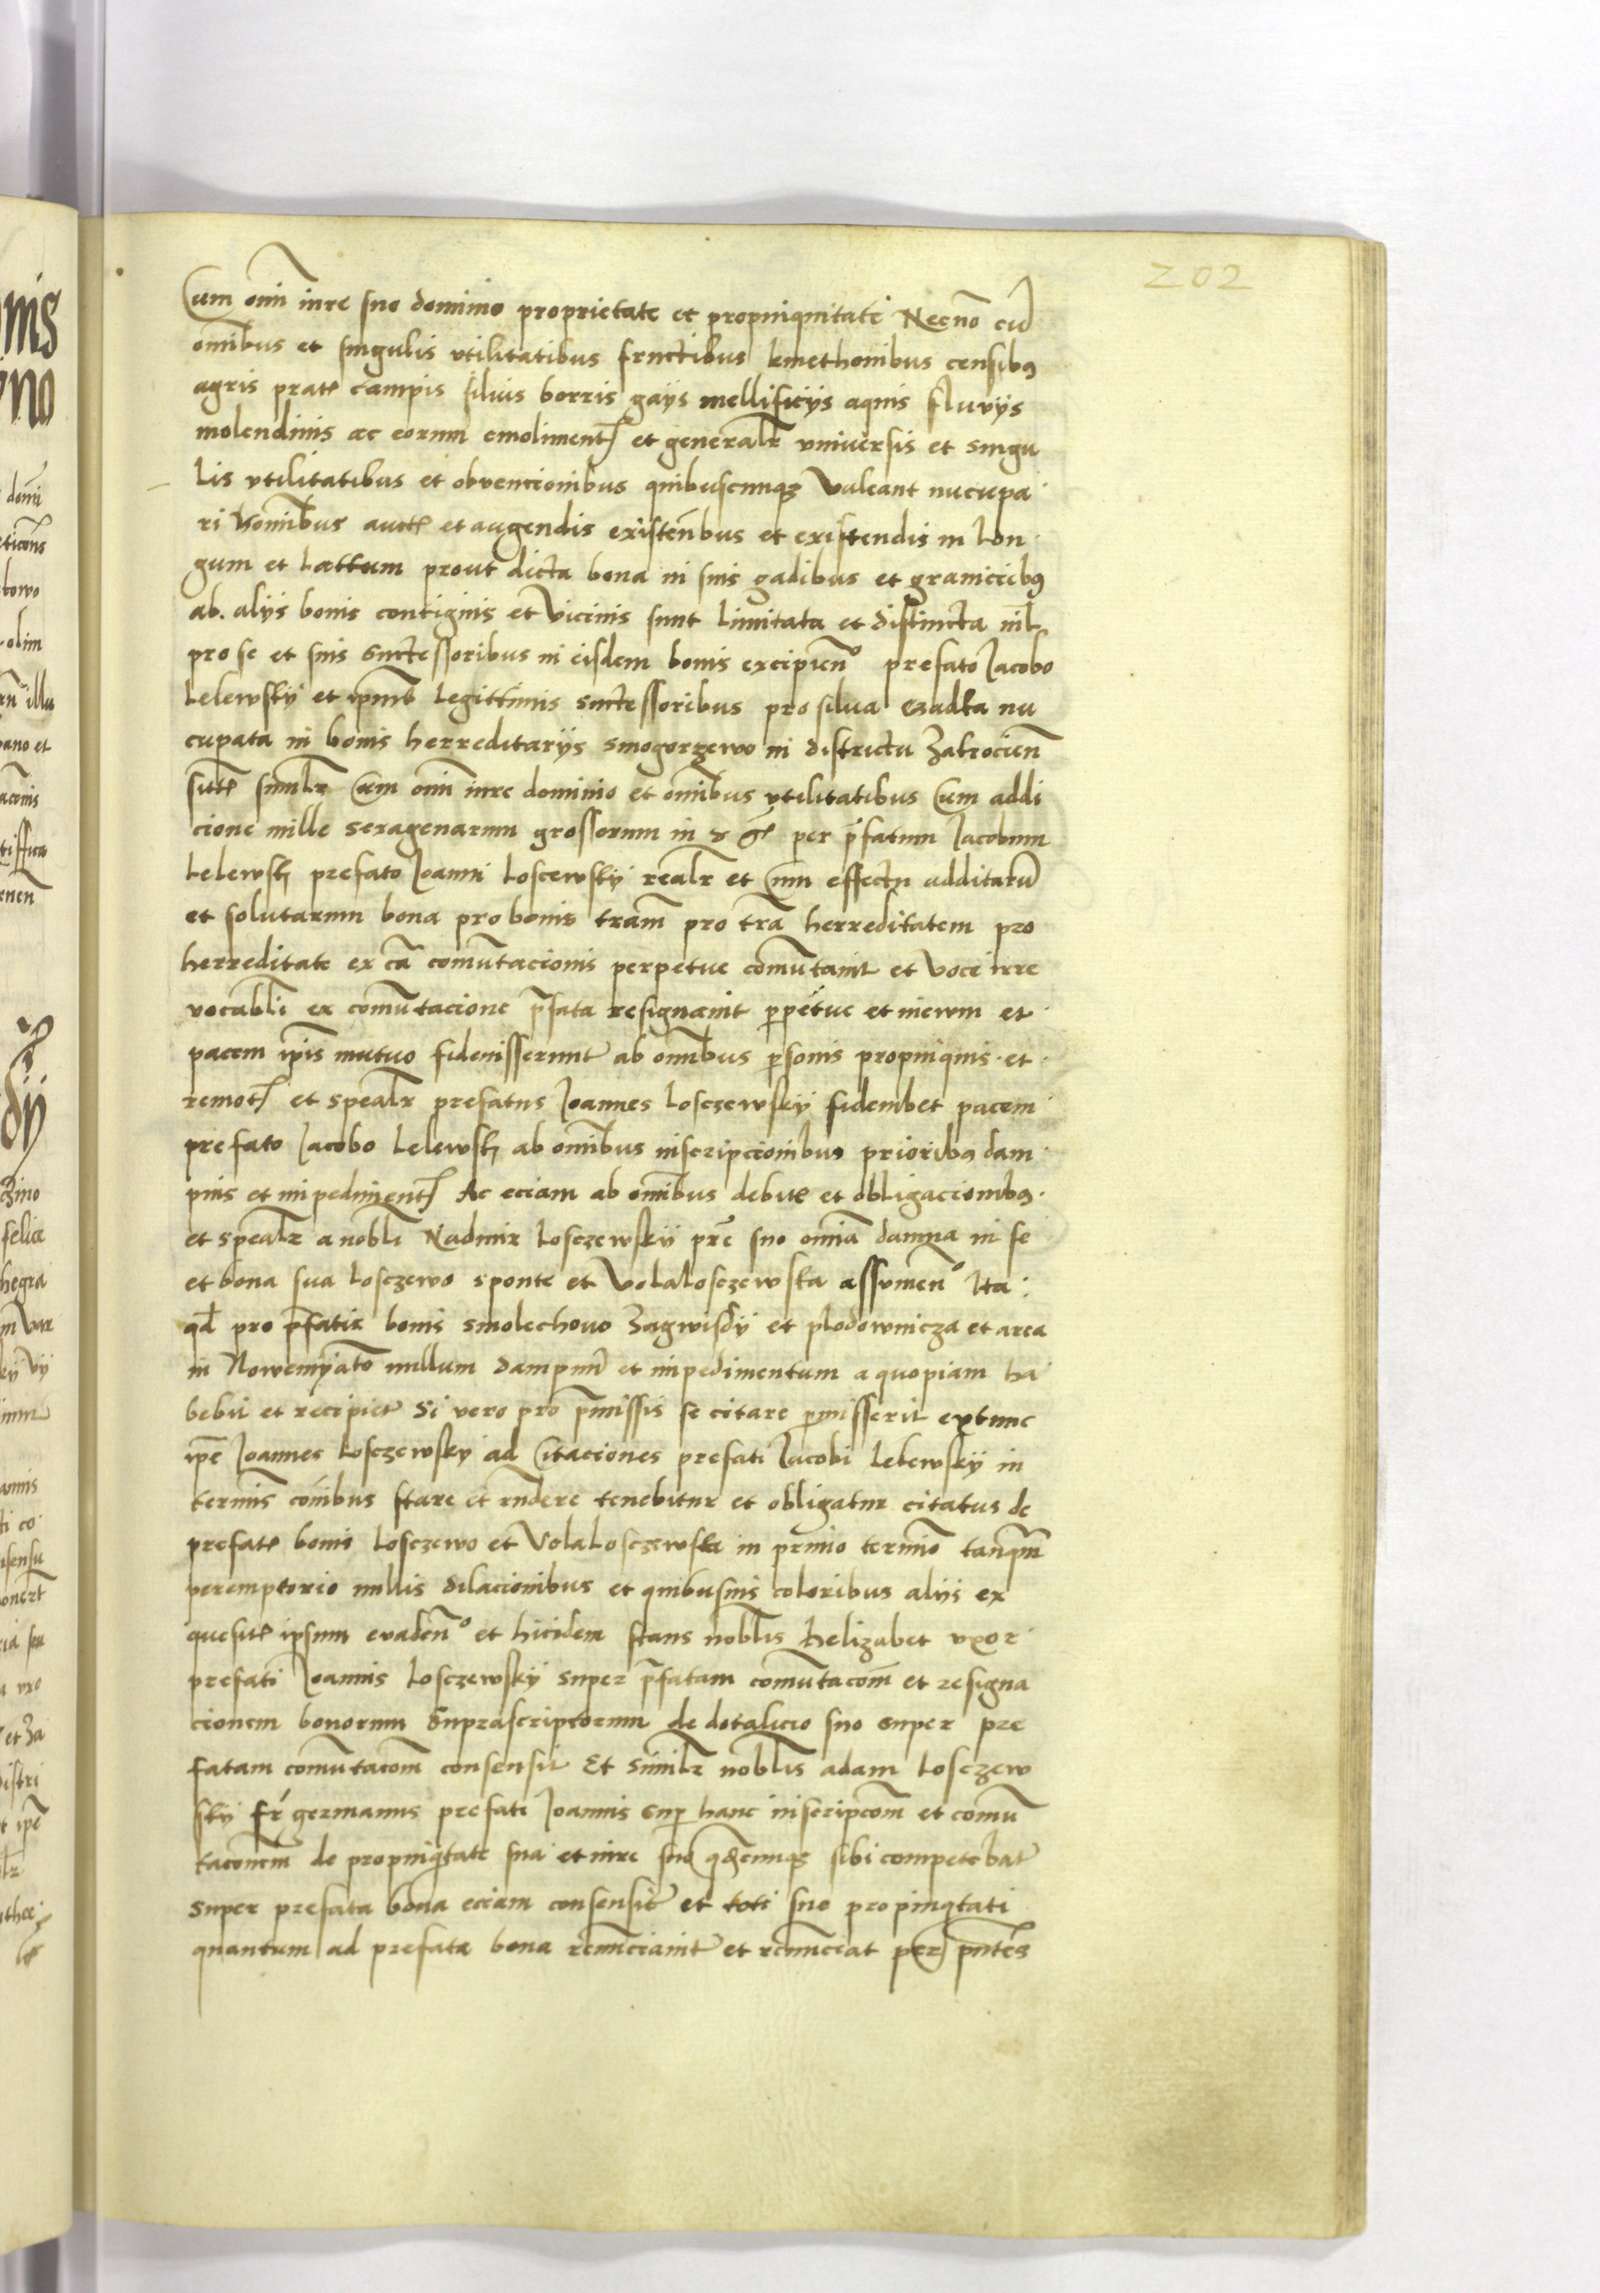 202
Cum omi iure suo dominio proprietate et propinquitate Necno cu
omibus et singulis vtilitatibus fructibus kmethonibus censibus
agris prat campis siluis borris gays mellificiis aquis fluvijs
molendinis ac eorum emoliment et generalr vniuersis et singu
lis vtilitatibus et obvencionibus quibuscumque valeant nucupa
ri nominibus auct et augendis existentibus et existendis in lon
gum et lattum prout dicta bona in suis gadibus et graniciebus
ab alijs bonis contiguis et vicinis sunt limitata et distincta nil
pro se et suis successoribus in eisdem bonis excipien prefato Jacobo
Lelewsky et ipius legittimis successoribus pro silua nu
cupata in bonis herreditarijs smogorzewo in districtu Zakrocien
sit similr Cum omi iure dominio et omibus vtilitatibus Cum addi
cione mille sexagenarum grossorum in per pfatum Jacobum
Lelewsk prefato Joanni Loscewsky realr et cum effectu additaru
et solutarum bona pro bonis tram pro tra herreditatem pro
herreditate ex ca comutacionis perpetue comutauit et voce irre
vocabli ex comutacione pfata resignauit ppetue et
pacem ipis mutuo fideiusserunt ab omibus psonis propinquis et
remot et spealr prefatus Joannes Losczewsky fideiubet pacem
prefato Jacobo Lelewsk ab omibus inscripcionibus prioribus dam
pnis et impediment Ac eciam ab omibus debit et obligacionibus
et spealr a nobli Nadmir Losczewsky pre suo omia damna in se
et bona sua Losczewo sponte et Volalosczewska assumen Ita
qd pro pfatis bonis smolechowo Zagwisdy et plodownicza et area
in Nowemyasto nullum dampnu et impedimentum a quopiam ha
bebit et recipiet Si vero pro pmissis se citare pmisserit extunc
ipe Joannes Losczewsky ad Citaciones prefati Jacobi Lelewsky in
terminis stare et rndere tenebitur et obligatur citatus de
prefat bonis Losczewo et VolaLosczewska in primo termio tanqm
peremptorio nullis dilacionibus et quibusuis coloribus alijs ex
quesit ipsum evaden et hicidem stans noblis helizabet vxor
prefati Joannis Losczewsky super pfatam comutacom et resigna
cionem bonorum suprascriptorum de dotalicio suo super pre
fatam comutacom consensit Et similr noblis adam Losczew
sky fr germanus prefati Joannis sup hanc inscripcom et comu
taconem de propinqtate sua et iure suo sibi competebat
super prefata bona eciam consensit et toti suo propinqtati
quantum ad prefata bona renunciauit et renunciat per pntes